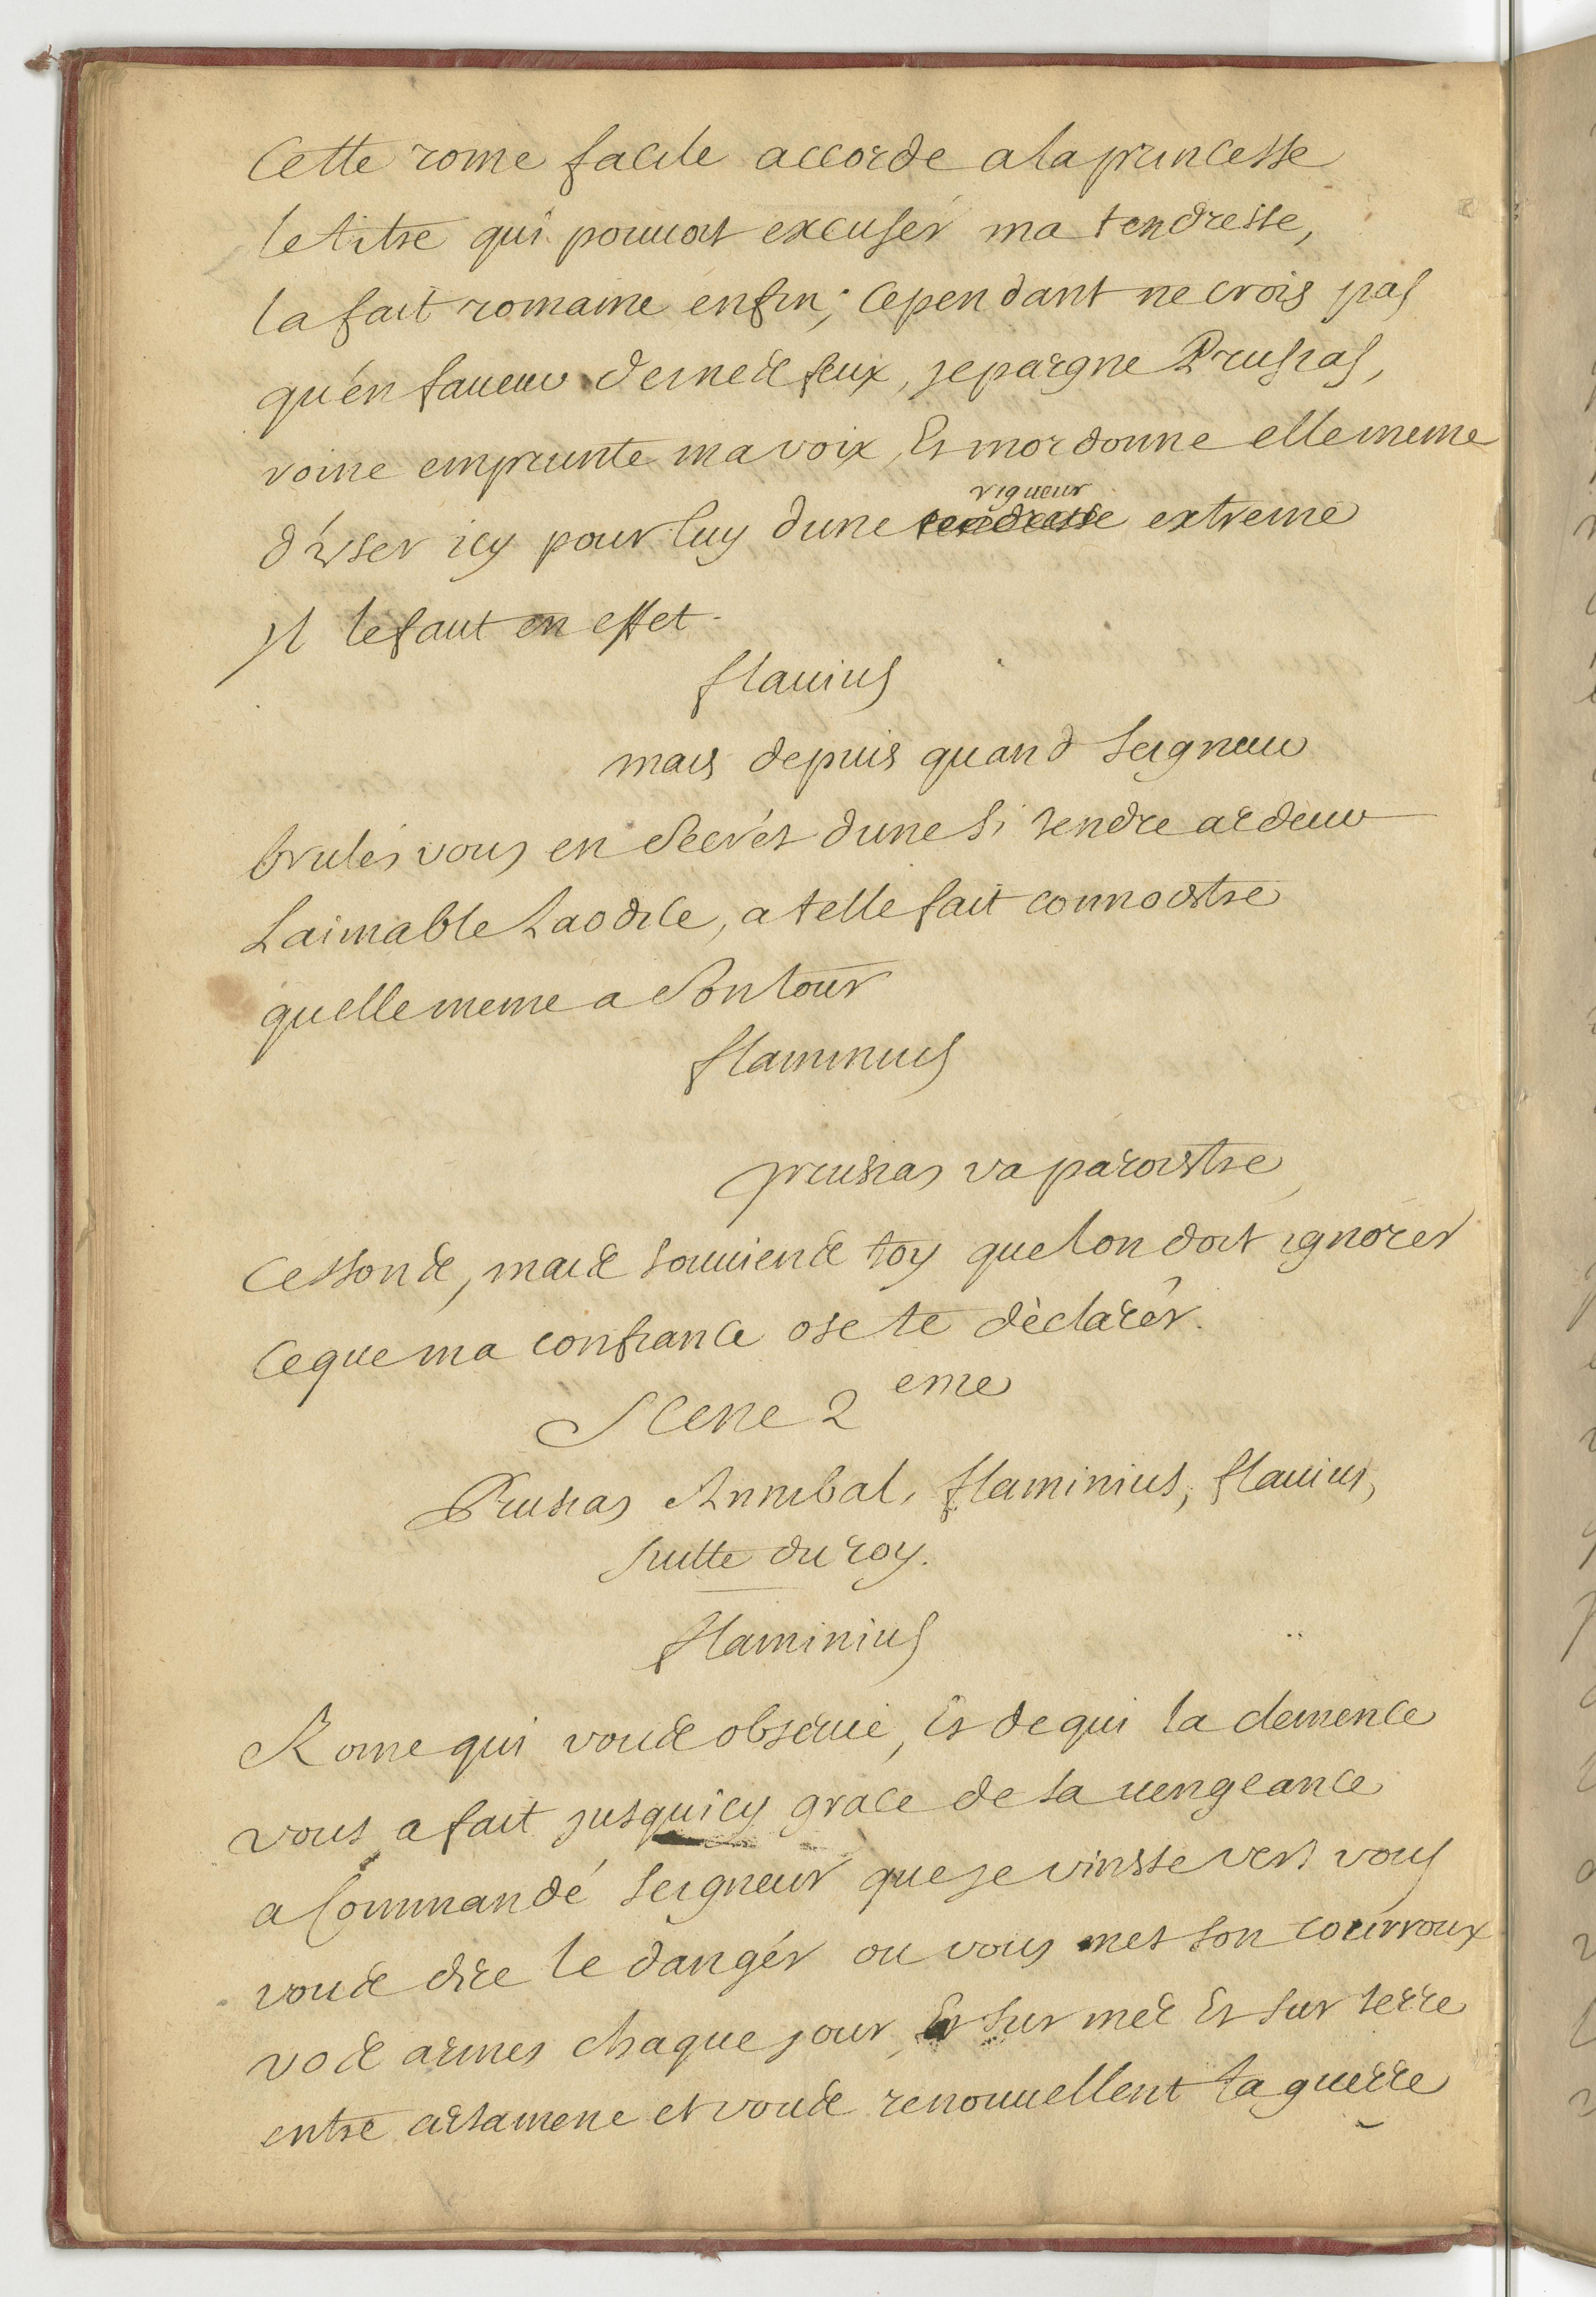 Cette rome facile accorde a la princesse
le titre qui pouuoit excuser ma tendresse,
la fait romaine enfin; cependant ne crois pas
qu'en faueur de mes feux, jepargne Prusias,
rome emprunte ma voix, Et mordonne elle meme
d'vser icy pour luy dune tendresse rigueur extreme
jl le faut en effet.
flauius
mais depuis quand seigneur
brulés vous en secrét dune si tendre ardeur
Laimable Laodice, a telle fait connoistre
quelle meme a son tour
flaminius
prusias va paroistre,
Cessons, mais souuiens toy que lon doit ignorer
ce que ma confiance ose te déclarér.
Scene 2 eme
Prusias Annibal, flaminius, flauius,
suitte du roy.
flaminius
Rome qui vous obserue, Et de qui la clemence
vous a fait jusquicy grace de sa uengeance
a Commandé seigneur que je vinsse vers vous
vous dire le dangér ou vous met son courroux
vos armes chaque jour, Et sur mer Et sur terre
entre artamene et vous renouuellent la guerre